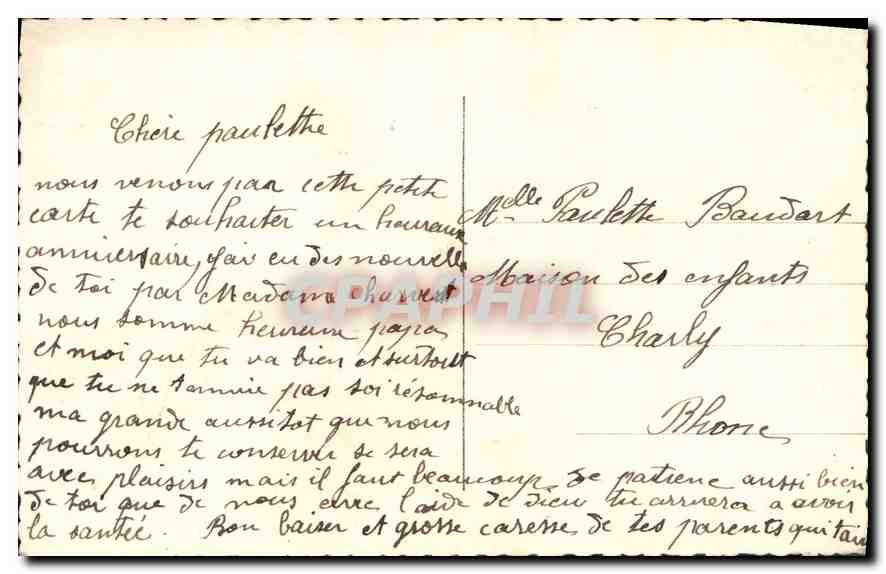 Chère paulethe
nous venons par cette petite
carte te souhaiter un heureux
anniversaire, j'ai eu des nouvelle
de toi par Madame charvet
nous somme heureux papa
et moi que tu va bien et surtout
que tu ne t'ennuie pas soi résonnable
ma grande aussitot que nous
pourrons te conserver se sera
avec plaisirs mais il faut beaucoup de patiene aussi bien
de toi que de nous avec l'aide de dieu tu arrivera a avoir
la santée. Bon baiser et grosse caresse de tes parents qui t'aim
Melle Paulette Baudart
Maison des enfants
Charly
Rhone
CPAPHIL